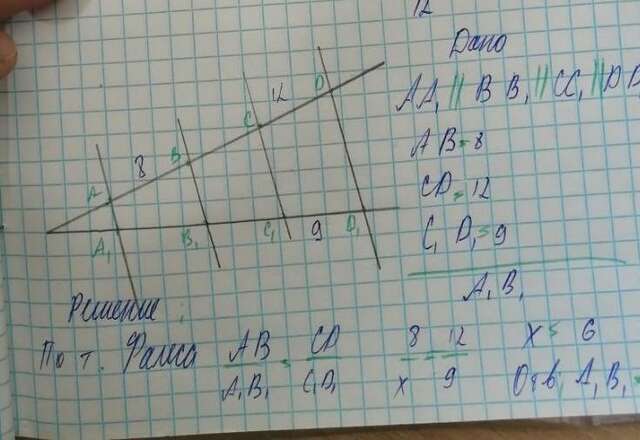 12
Дано
AA₁ || BB₁ || CC₁ || DD
AB = 8
CD = 12
C₁D₁ = 9
A₁B₁
12
D
C
B
8
A
A₁
B₁
C₁
9
D₁
Решение:
По т. Фалеса AB/A₁B₁ = CD/C₁D₁ 8/x = 12/9 x = 6
Отв; A₁B₁ =